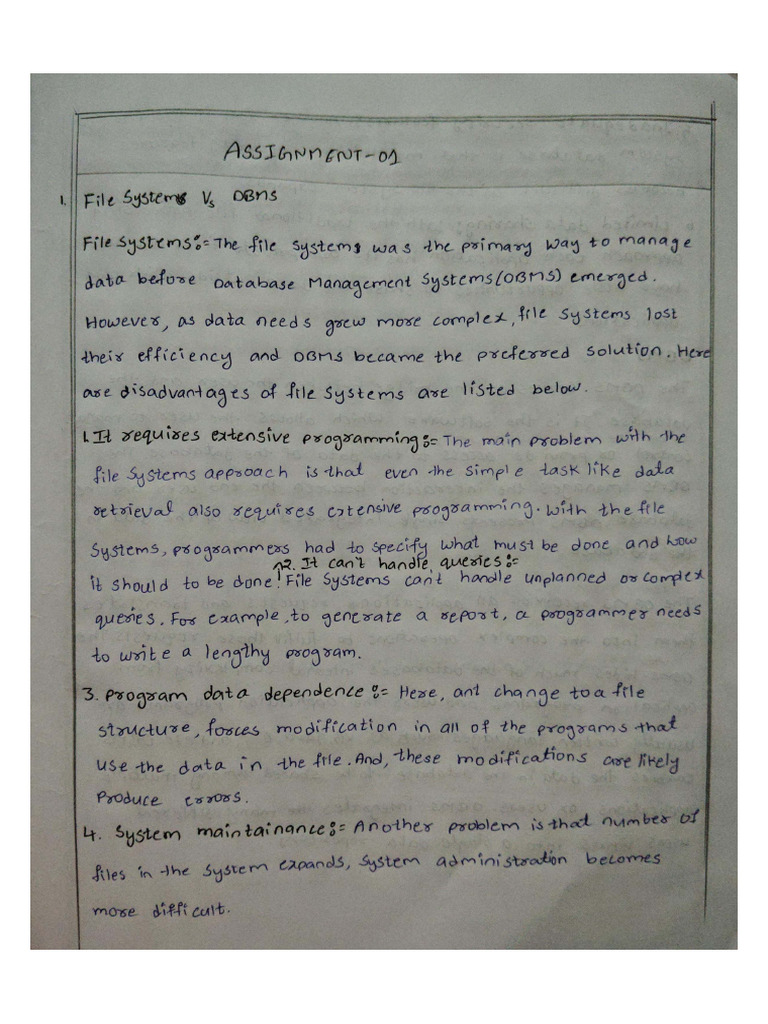 ASSIGNMENT-01
1. File Systems Vs DBMS
File Systems:= The file systems was the primary way to manage
data before Database Management Systems (DBMS) emerged.
However, as data needs grew more complex, file systems lost
their efficiency and DBMS became the preferred solution. Here
are disadvantages of file systems are listed below.
1. It requires extensive programming:= The main problem with the
file systems approach is that even the simple task like data
retrieval also requires extensive programming. With the file
systems, programmers had to specify what must be done and how
2. It can't handle queries:=
it should to be done. File systems can't handle unplanned or complex
queries. For example, to generate a report, a programmer needs
to write a lengthy program.
3. Program data dependence:= Here, ant change to a file
structure, forces modification in all of the programs that
use the data in the file. And, these modifications are likely
produce errors.
4. System maintainance:= Another problem is that number of
files in the system expands, system administration becomes
more difficult.